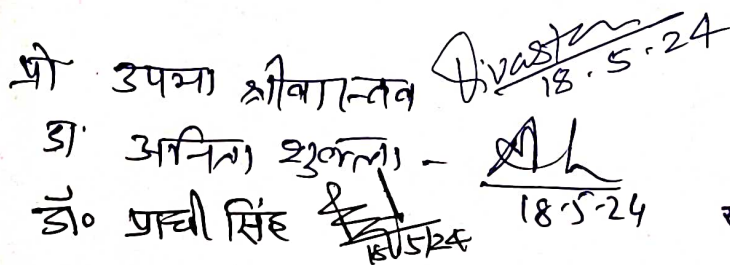 प्रो उपमा श्रीवास्तव 18.5.24
डा. अनिता शुक्ला - 18-5-24
डॉ० प्राची सिंह 18/5/24